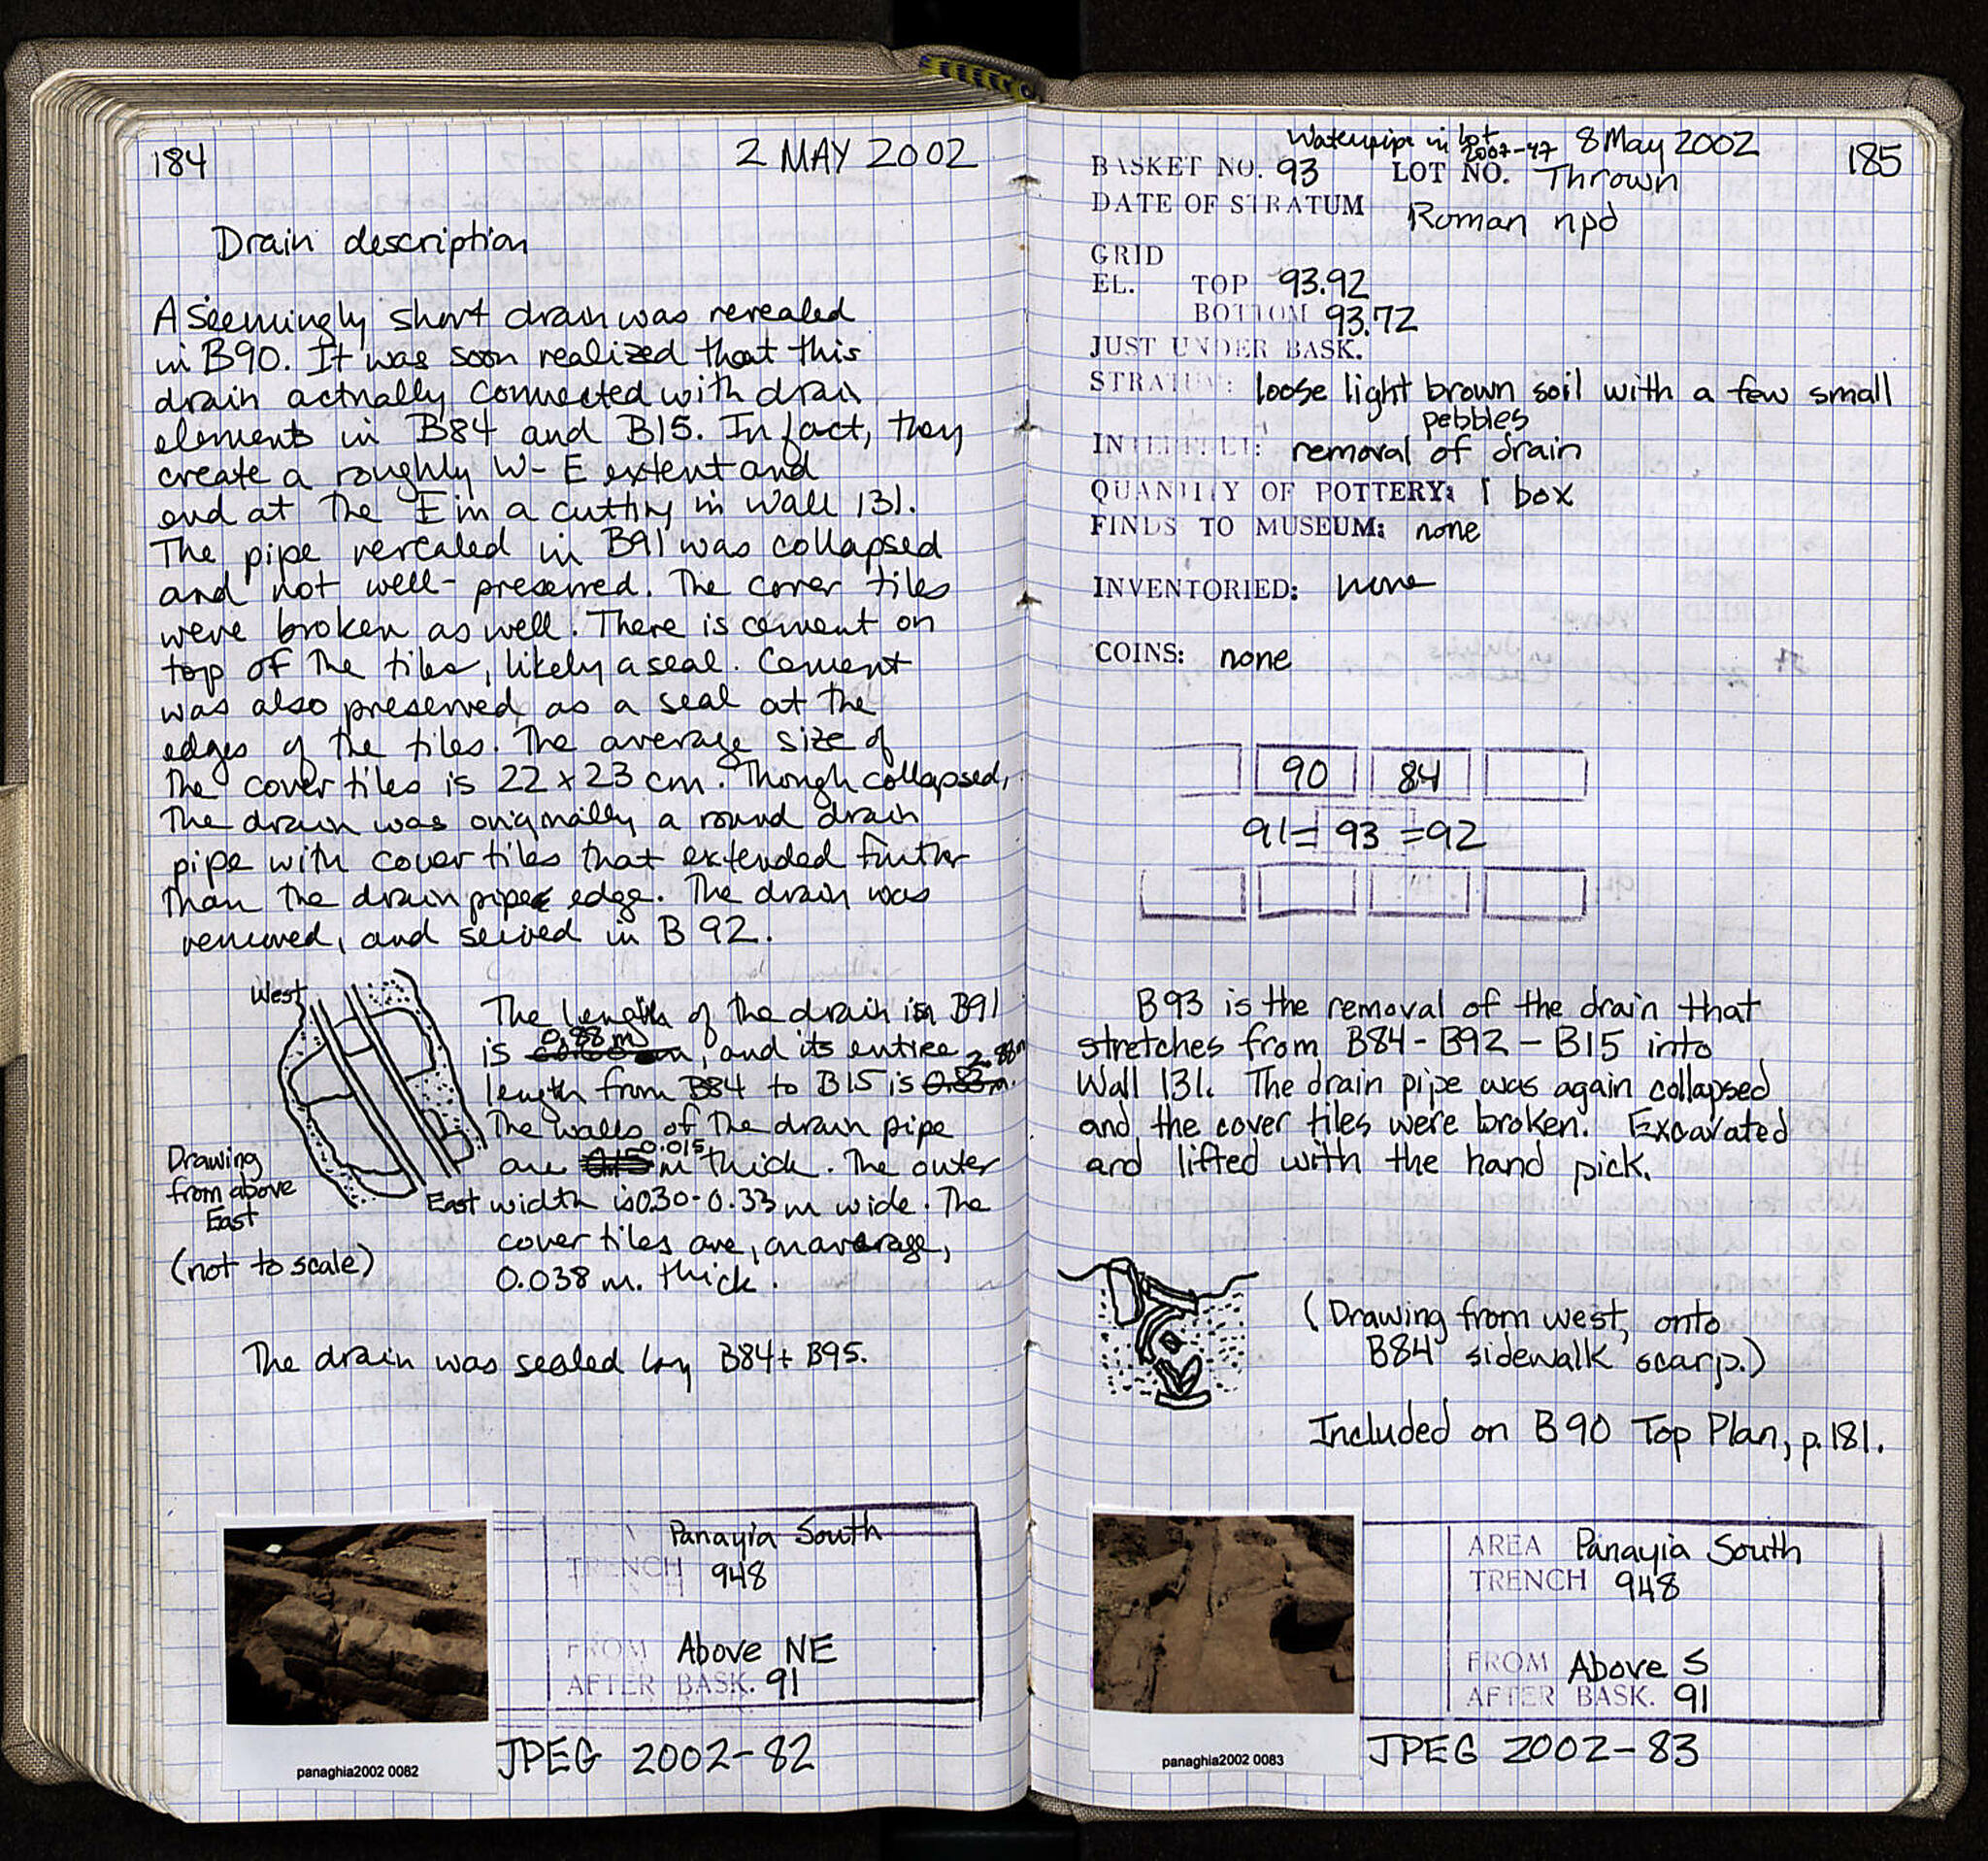 184
2 MAY 2002
Drain description
A seemingly short drain was revealed
in B90. It was soon realized that this
drain actually connected with drain
elements in B84 and B15. In fact, they
create a roughly W-E extent and
end at the E in a cutting in Wall 131.
The pipe revealed in B91 was collapsed
and not well-preserved. The cover tiles
were broken as well. There is cement on
top of the tiles, likely a seal. Cement
was also preserved as a seal at the
edges of the tiles. The average size of
the cover tiles is 22 x 23 cm. Though collapsed,
the drain was originally a round drain
pipe with cover tiles that extended further
than the drain pipe edge. The drain was
removed, and seived in B 92.
West
The length of the drain in B91
is 0.88 m, and its entire
length from B84 to B15 is 2.88m
The walls of the drain pipe
are 0.015 m thick. The outer
width is 0.30-0.33 m wide. The
cover tiles are, on average,
0.038 m. thick.
Drawing
from above
East
East
(not to scale)
The drain was sealed by B84 + B95.
Panayia South
TRENCH 948
FROM Above NE
AFTER BASK. 91
panaghia2002 0082
JPEG 2002-82
Waterpipe in lot 2002-47
8 May 2002
185
BASKET NO. 93 LOT NO. Thrown
DATE OF STRATUM Roman npd
GRID
EL. TOP 93.92
BOTTOM 93.72
JUST UNDER BASK.
STRATUM: loose light brown soil with a few small
pebbles
INTERPRET: removal of drain
QUANTITY OF POTTERY: 1 box
FINDS TO MUSEUM: none
INVENTORIED: none
COINS: none
90 84
91= 93 =92
B93 is the removal of the drain that
stretches from B84-B92-B15 into
Wall 131. The drain pipe was again collapsed
and the cover tiles were broken. Excavated
and lifted with the hand pick.
(Drawing from west, onto
B84 sidewalk scarp.)
Included on B90 Top Plan, p.181.
AREA Panayia South
TRENCH 948
FROM Above S
AFTER BASK. 91
panaghia2002 0083
JPEG 2002-83